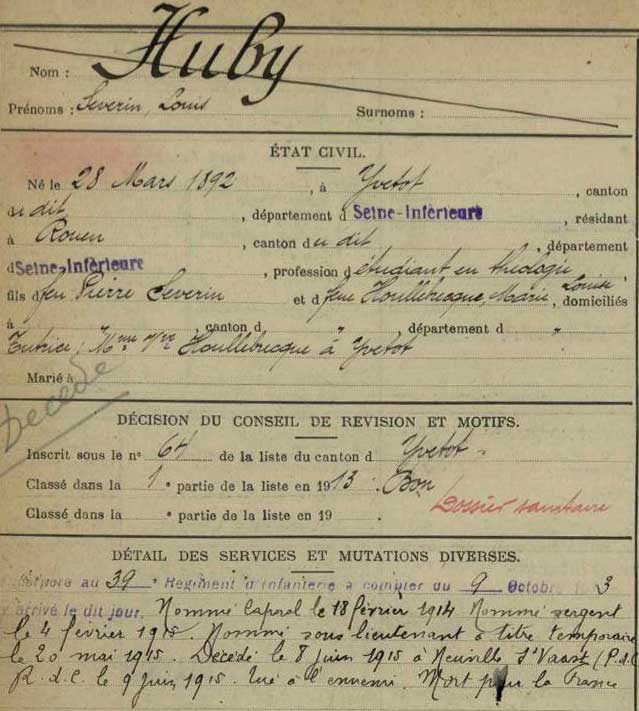 Nom : Huby
Prénoms : Séverin, Louis Surnoms :
ÉTAT CIVIL.
Né le 28 Mars 1892, à Yvetot, canton
du dit, département d Seine-Inférieure, résidant
à Rouen, canton du dit, département
d Seine-Inférieure, profession d'étudiant en théologie
fils d feu Pierre Séverin et d feue Houllebrecque, Marie, Louise, domiciliés
à " , canton d " , département d "
Tutrice : Mme Vve Houllebrecque à Yvetot
Marié à
Décédé
DÉCISION DU CONSEIL DE REVISION ET MOTIFS.
Inscrit sous le n° 64 de la liste du canton d Yvetot
Classé dans la 1e partie de la liste en 1913. Bon
Classé dans la e partie de la liste en 19 . Dossier sanitaire
DÉTAIL DES SERVICES ET MUTATIONS DIVERSES.
au 39e Régiment d'Infanterie à compter du 9 Octobre 3
arrivé le dit jour. Nommé Caporal le 18 février 1914 Nommé sergent
le 4 février 1915. Nommé sous lieutenant à titre temporaire
le 20 mai 1915. Décédé le 8 juin 1915 à Neuville St Vaast (P.d.C
R.d.C. le 9 juin 1915. Tué à l'ennemi. Mort pour la France